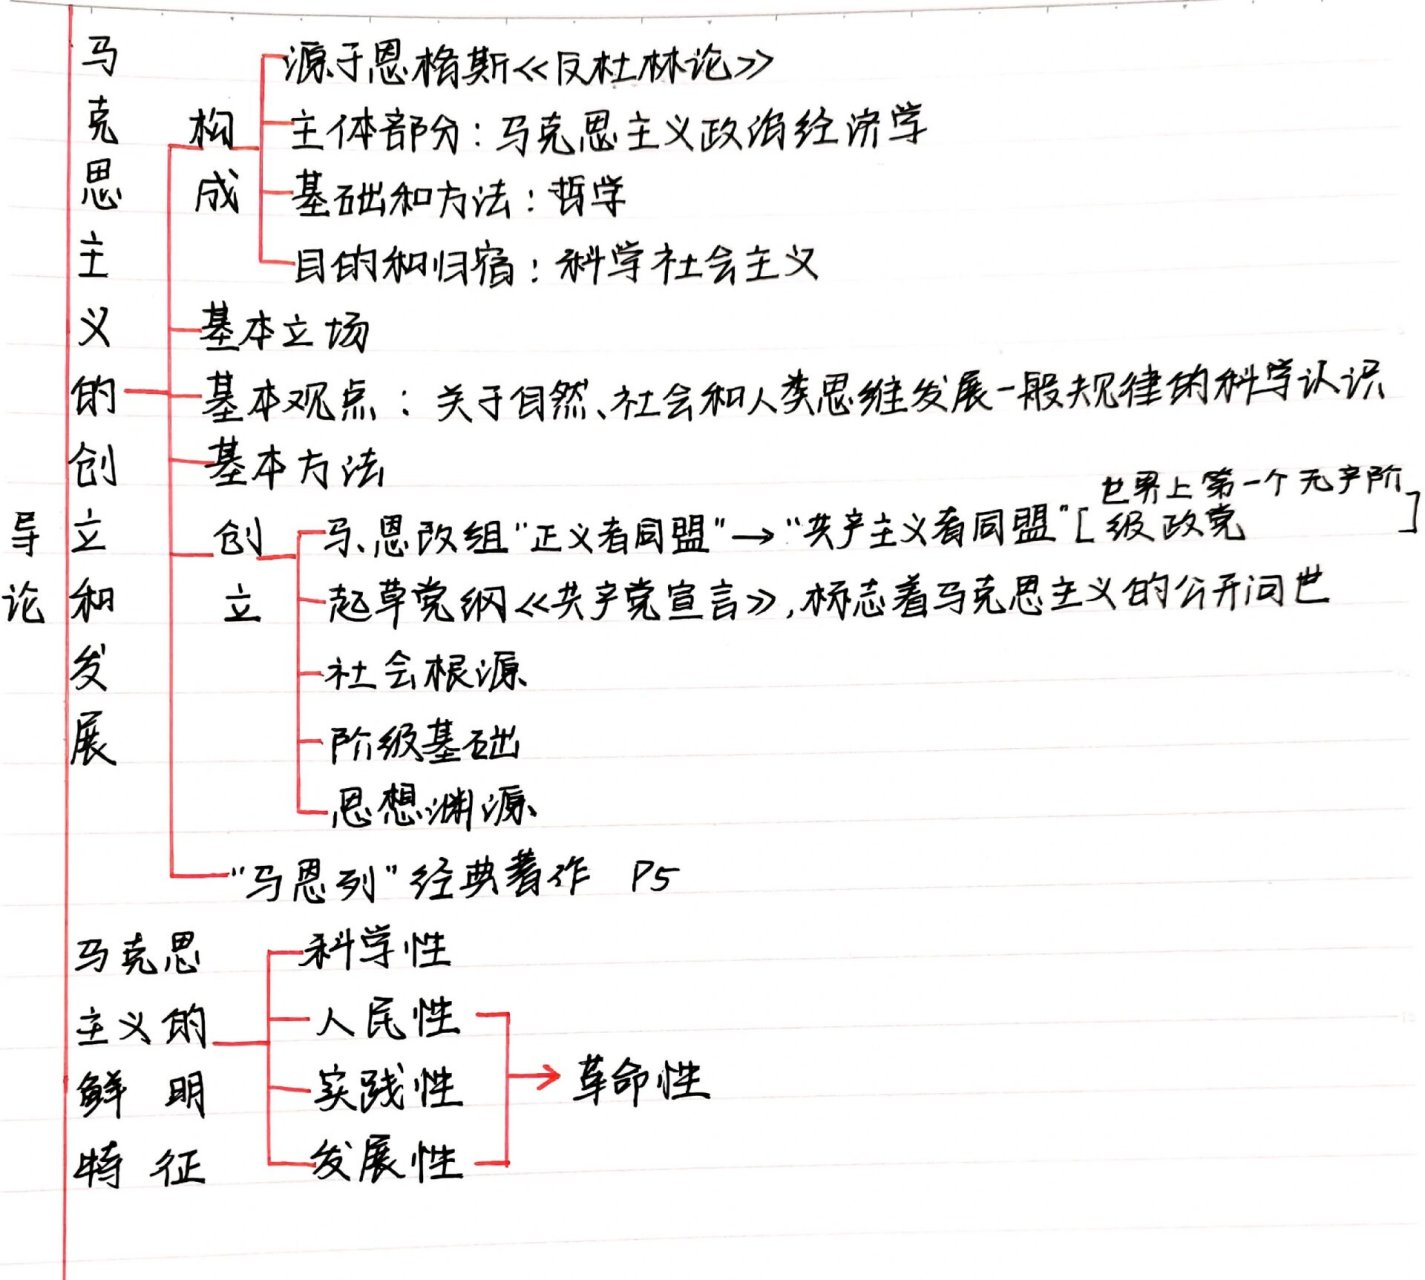 导论
马克思主义的创立和发展
构成
源于恩格斯《反杜林论》
主体部分：马克思主义政治经济学
基础和方法：哲学
目的和归宿：科学社会主义
基本立场
基本观点：关于自然、社会和人类思维发展一般规律的科学认识
基本方法
创立
马、恩改组“正义者同盟”→“共产主义者同盟”[世界上第一个无产阶
级政党]
起草党纲《共产党宣言》，标志着马克思主义的公开问世
社会根源
阶级基础
思想渊源
“马恩列”经典著作 P5
马克思
主义的
鲜明
特征
科学性
人民性
实践性
发展性
革命性